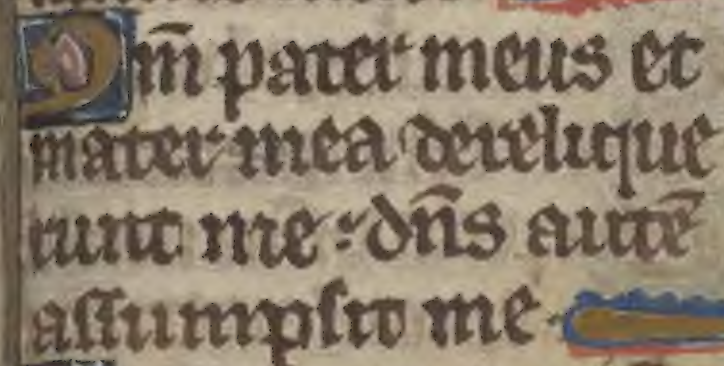 Qm̄ pater meus et
mater mea derelique
runt me : dn̄s autē
assumpsit me .